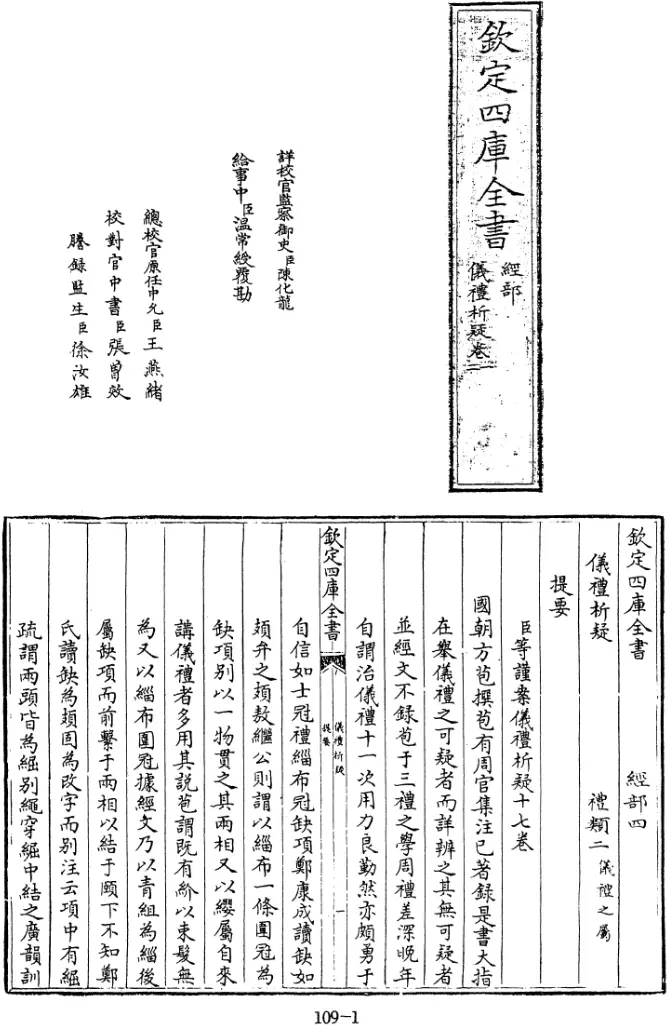 欽定四庫全書
經部
儀禮析疑卷一
詳校官監察御史臣陳化龍
給事中臣溫常綬覆勘
總校官原任中允臣王燕緒
校對官中書臣張曾效
謄錄監生臣徐汝雄
欽定四庫全書 經部四
儀禮析疑 禮類二儀禮之屬
提要
臣等謹案儀禮析疑十七卷
國朝方苞撰苞有周官集注已著錄是書大指
在舉儀禮之可疑者而詳辨之其無可疑者
並經文不錄苞于三禮之學周禮差深晚年
自謂治儀禮十一次用力良勤然亦頗勇于
欽定四庫全書 儀禮析疑 提要 一
自信如士冠禮緇布冠缺項鄭康成讀缺如
頍弁之頍敖繼公則謂以緇布一條圍冠為
缺項別以一物貫之其兩相又以纓屬自來
講儀禮者多用其說苞謂既有紒以束髮無
為又以緇布圍冠據經文乃以青組為緇後
屬缺項而前繫于兩相以結于頤下不知鄭
氏讀缺為頍固為改字而別注云項中有𦀖
疏謂兩頭皆為𦀖別繩穿𦀖中結之廣韻訓
109-1